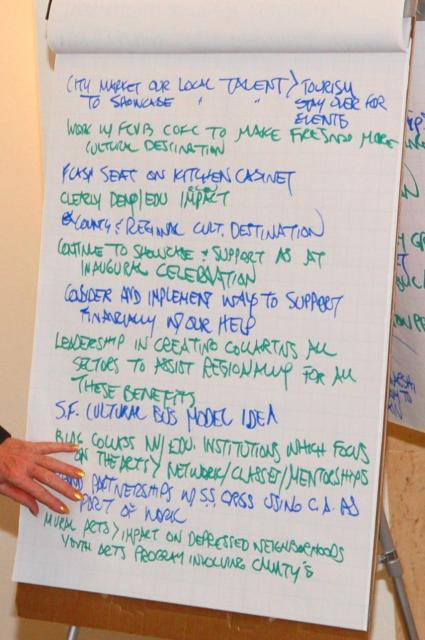 CITY MARKET OUR LOCAL TALENT > TOURISM
TO SHOWCASE " " STAY OVER FOR
EVENTS
WORK W/ FCVB COFC TO MAKE FRESNO MORE
CULTURAL DESTINATION
PUSH SEAT ON KITCHEN CABINET
CLEARLY DEMO/EDU IMPACT
COUNTY & REGIONAL CULT. DESTINATION
CONTINUE TO SHOWCASE & SUPPORT AS AT
INAUGURAL CELEBRATION
CONSIDER AND IMPLEMENT WAYS TO SUPPORT
FINANCIALLY W/ OUR HELP
LEADERSHIP IN CREATING ALL
SECTORS TO ASSIST REGIONALLY FOR ALL
THESE BENEFITS
S.F. CULTURAL BUS MODEL IDEA
W/ EDU. INSTITUTIONS WHICH FOCUS
ON THE ARTS/ NETWORK/CLASSES/MENTORSHIPS
PARTNERSHIPS W/ USING C.A. AS
PART OF WORK
MURAL ARTS > IMPACT ON DEPRESSED NEIGHBORHOODS
YOUTH ARTS PROGRAM INVOLVING